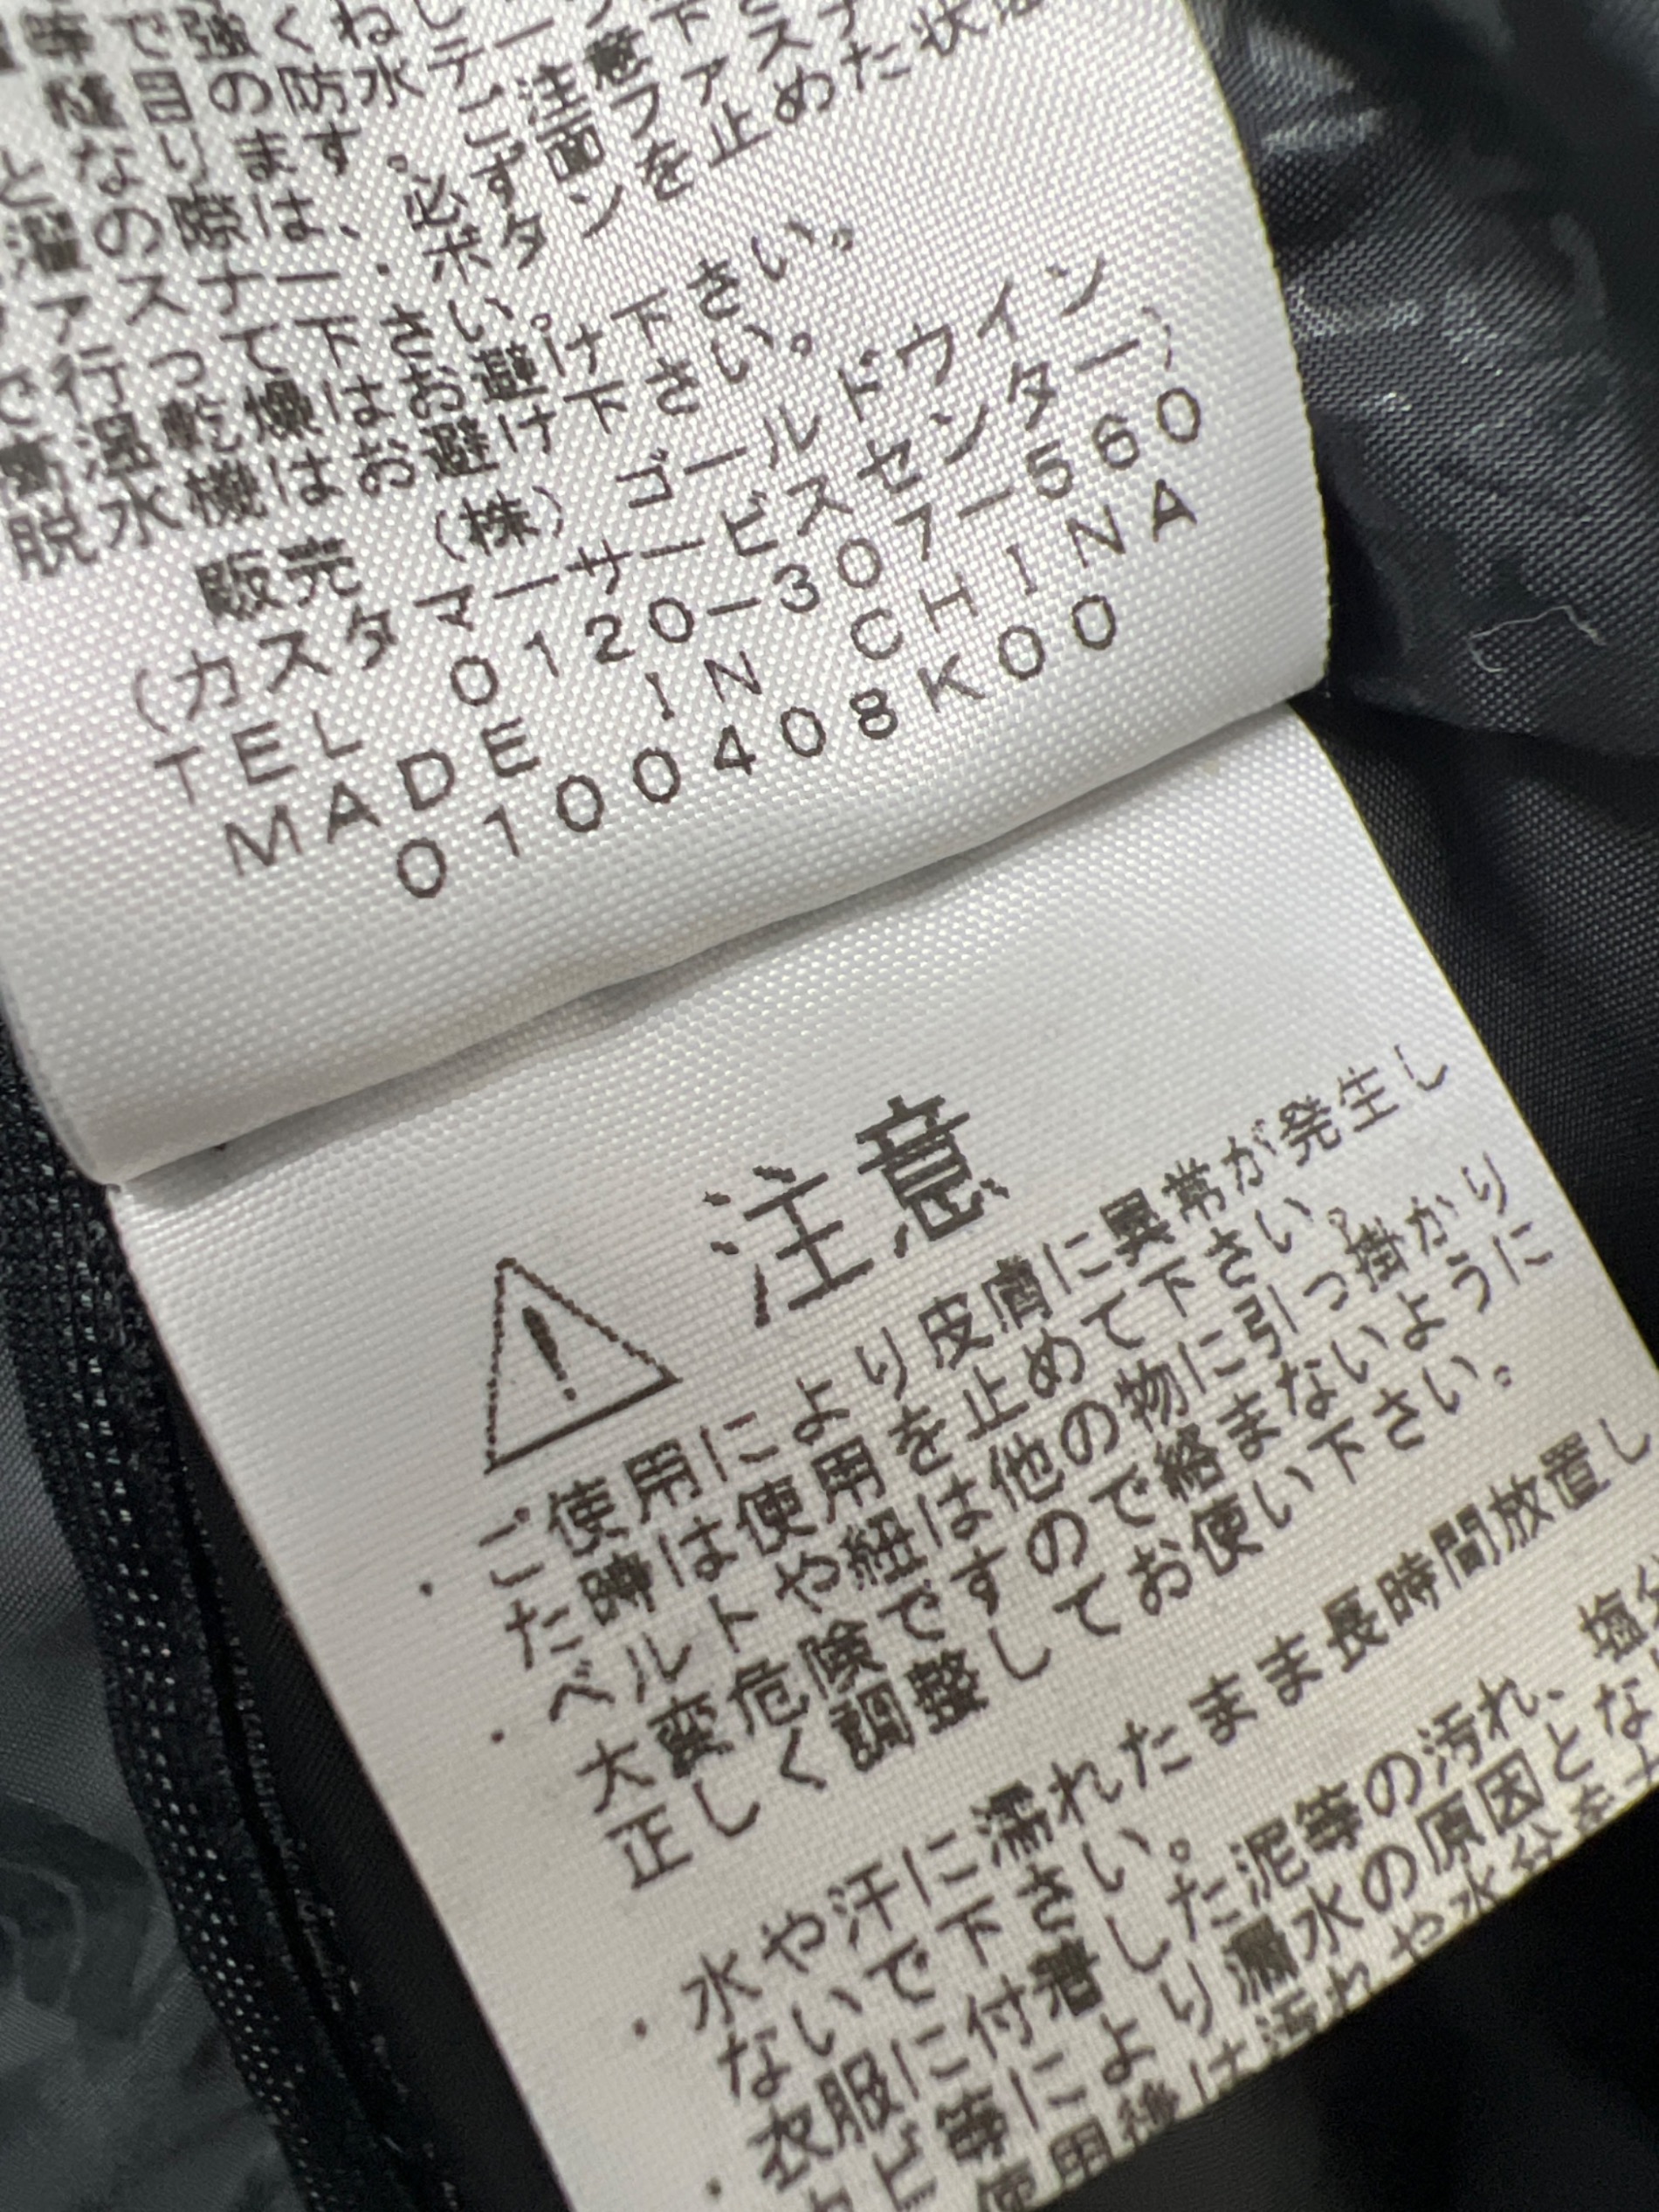 等で強くね
縫目の防水テ
なりますの
際は、必ずファスナ
ァスナー・ボタンを止めた状
行って下さい。
温乾燥はお避け下さい。
脱水機はお避け下さい。
販売 (株)ゴールドウイン
(カスタマーサービスセンター)
TEL 0120-307-560
MADE IN CHINA
0100408K00
注意
・ご使用により皮膚に異常が発生し
た時は使用を止めて下さい。
・ベルトや紐は他の物に引っ掛かり
大変危険ですので絡まないように
正しく調整してお使い下さい。
・水や汗に濡れたまま長時間放置し
ないで下さい。
・衣服に付着した泥等の汚れ、塩分
等により漏水の原因とな
使用後は汚れや水分を